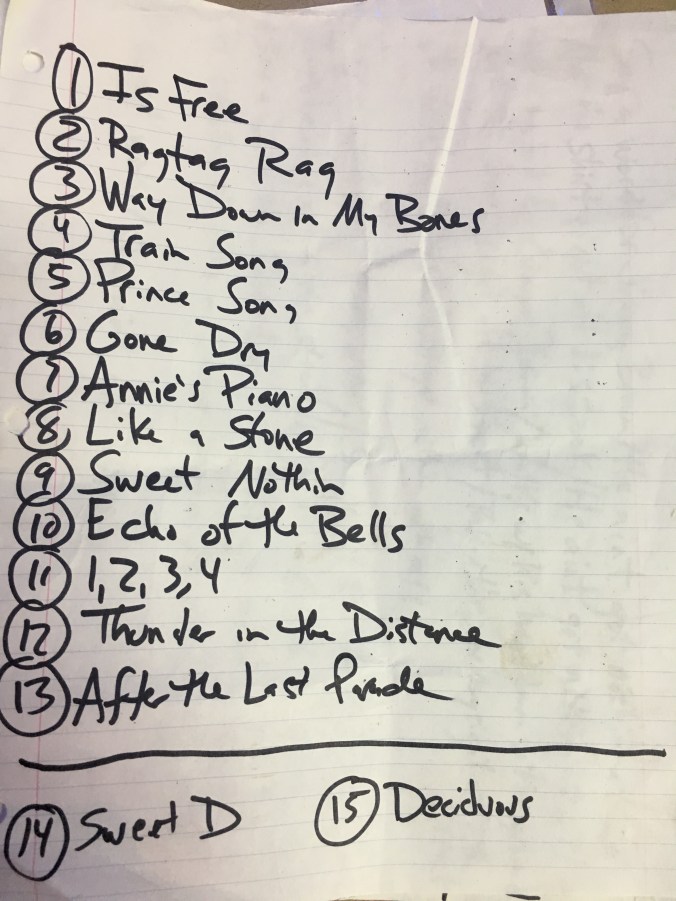 1 Is Free
2 Ragtag Rag
3 Way Down in My Bones
4 Train Song
5 Prince Song
6 Gone Dry
7 Annie's Piano
8 Like a Stone
9 Sweet Nothin
10 Echo of the Bells
11 1, 2, 3, 4
12 Thunder in the Distance
13 After the Last Parade
14 Sweet D 15 Deciduous